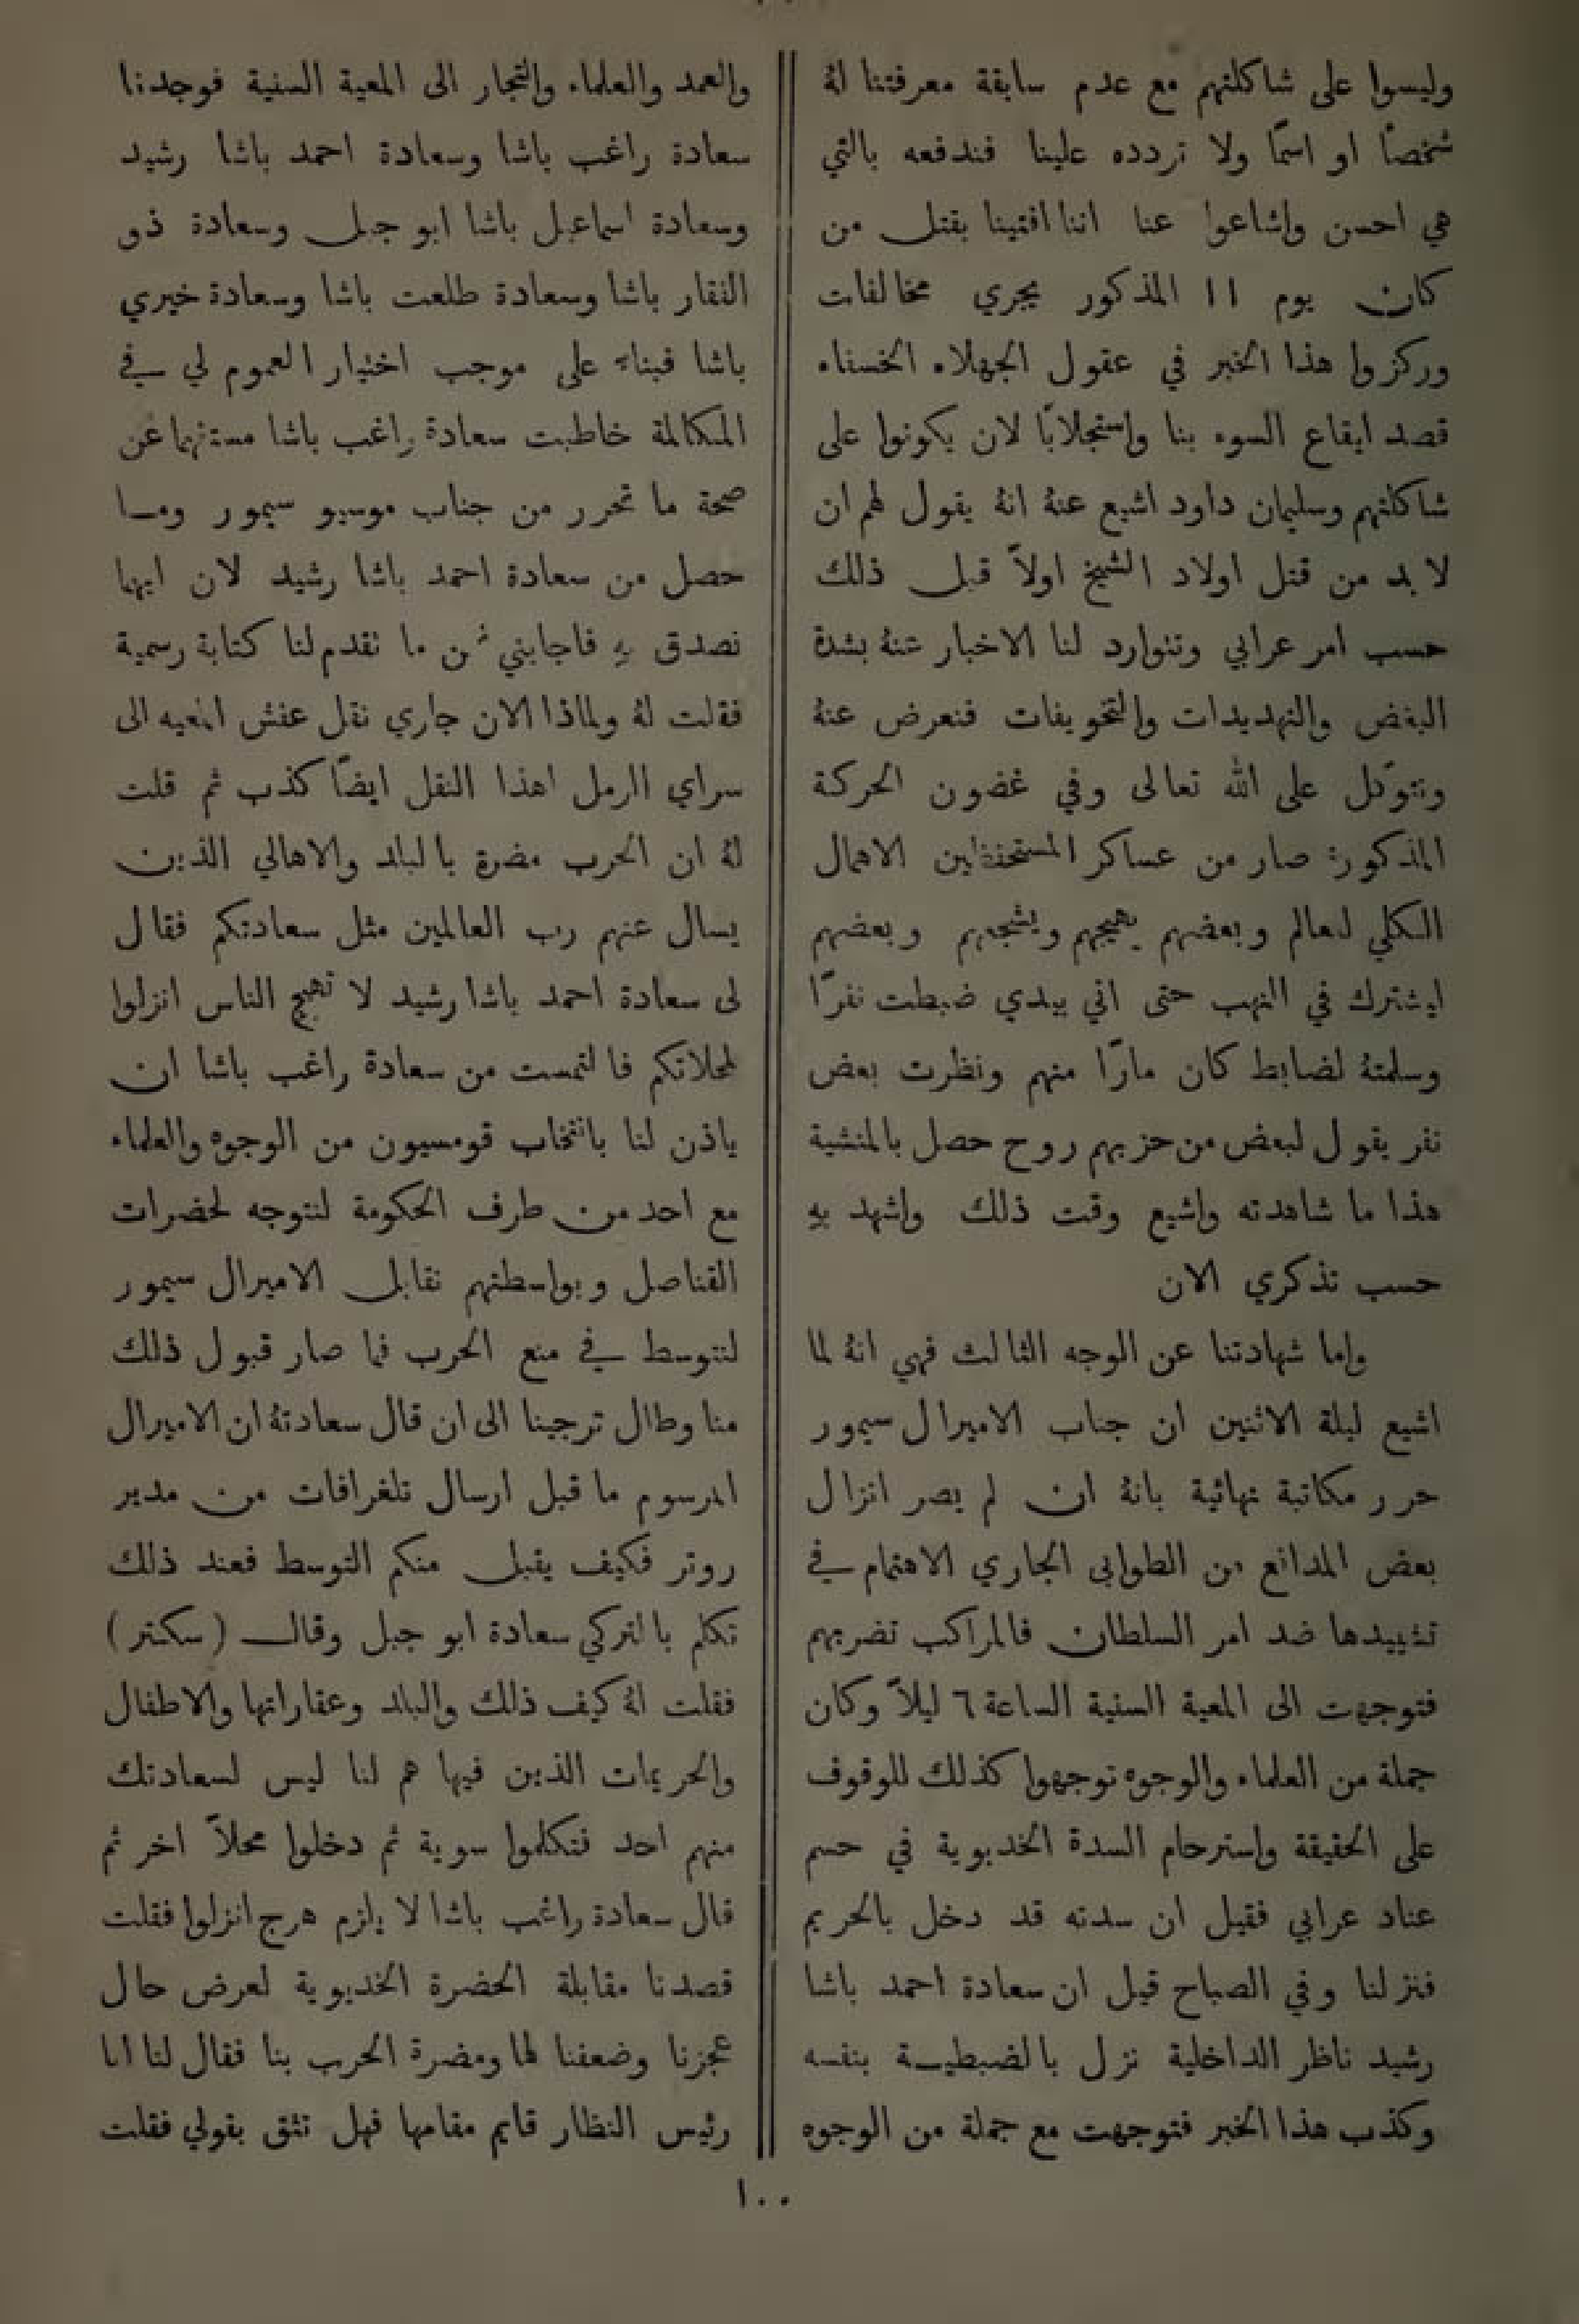 وليسوا على شاكلتهم مع عدم سابقة معرفتنا لهُ
شخصًا او اسمًا ولا تردده علينا فندفعه بالتي
هي احسن واشاعوا عنا اننا افتينا بقتل من
كان يوم ١١ المذكور يجري مخالفات
وركزوا هذا الخبر في عقول الجهلاء الخسفاء
قصد ايقاع السوء بنا واستجلابًا لان يكونوا على
شاكلتهم وسليمان داود اشيع عنهُ انهُ يقول لهم ان
لا بد من قتل اولاد الشيخ اولاً قبل ذلك
حسب امر عرابي وتتوارد لنا الاخبار عنهُ بشدة
البغض والتهديدات والتخويفات فنعرض عنهُ
ونتوكل على الله تعالى وفي غضون الحركة
المذكورة صار من عساكر المستحفظين الاهمال
الكلي لعالم وبعضهم يهيجهم ويشجعهم وبعضهم
يشترك في النهب حتى اني بيدي ضبطت نفرًا
وسلمتهُ لضابط كان مارًا منهم ونظرت بعض
نفر يقول لبعض من حزبهم روح حصل بالمنشية
هذا ما شاهدته واشيع وقت ذلك واشهد بهِ
حسب تذكري الان
واما شهادتنا عن الوجه الثالث فهي انهُ لما
اشيع ليلة الاثنين ان جناب الاميرال سيمور
حرر مكاتبة نهائية بانهُ ان لم يصر انزال
بعض المدافع من الطوابى الجاري الاهتمام في
تشييدها ضد امر السلطان فالمراكب تضربهم
فتوجهت الى المعية السنية الساعة ٦ ليلاً وكان
جملة من العلماء والوجوه توجهوا كذلك للوقوف
على الحقيقة واسترحام السدة الخديوية في حسم
عناد عرابي فقيل ان سدته قد دخل بالحريم
فنزلنا وفي الصباح قيل ان سعادة احمد باشا
رشيد ناظر الداخلية نزل بالضبطية بنفسه
وكذب هذا الخبر فتوجهت مع جملة من الوجوه
والعمد والعلماء والتجار الى المعية السنية فوجدنا
سعادة راغب باشا وسعادة احمد باشا رشيد
وسعادة اسماعيل باشا ابو جبل وسعادة ذو
الفقار باشا وسعادة طلعت باشا وسعادة خيري
باشا فبناءً على موجب اختيار العموم لي في
المكالمة خاطبت سعادة راغب باشا مستفهما عن
صحة ما تحرر من جناب موسيو سيمور وما
حصل من سعادة احمد باشا رشيد لان ايهما
نصدق بهِ فاجابني من ما تقدم لنا كتابة رسمية
فقلت لهُ ولماذا الان جاري نقل عفش المعيه الى
سراي الرمل اهذا النقل ايضًا كذب ثم قلت
لهُ ان الحرب مضرة بالبلد والاهالي الذين
يسال عنهم رب العالمين مثل سعادتكم فقال
لى سعادة احمد باشا رشيد لا تهيج الناس انزلوا
لمحلاتكم فالتمست من سعادة راغب باشا ان
ياذن لنا بانتخاب قومسيون من الوجوه والعلماء
مع احد من طرف الحكومة لنتوجه لحضرات
القناصل وبواسطتهم نقابل الاميرال سيمور
لنتوسط في منع الحرب فما صار قبول ذلك
منا وطال ترجينا الى ان قال سعادتهُ ان الاميرال
المرسوم ما قبل ارسال تلغرافات من مدير
روتر فكيف يقبل منكم التوسط فعند ذلك
تكلم بالتركي سعادة ابو جبل وقال (سكتر)
فقلت لهُ كيف ذلك والبلد وعقاراتها والاطفال
والحريمات الذين فيها هم لنا ليس لسعادتك
منهم احد فتكلموا سوية ثم دخلوا محلاً اخر ثم
قال سعادة راغب باشا لا يلزم هرج انزلوا فقلت
قصدنا مقابلة الحضرة الخديوية لعرض حال
عجزنا وضعفنا لها ومضرة الحرب بنا فقال لنا انا
رئيس النظار قايم مقامها فهل نثق بقولي فقلت
١٠٠